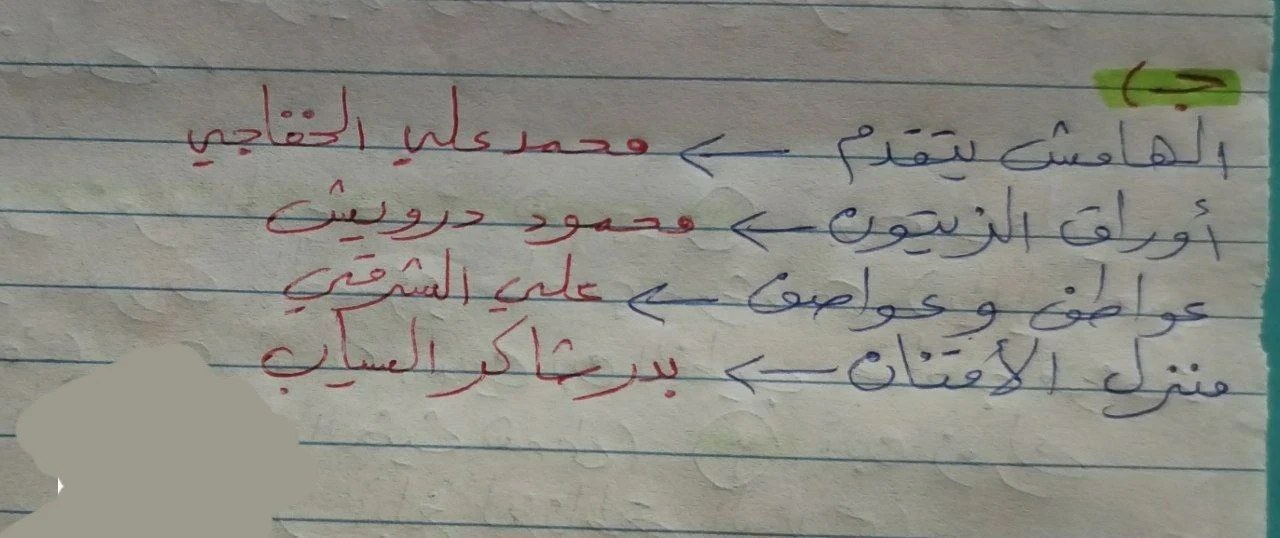 ج)
الهامش يتقدم ← محمد علي الخفاجي
أوراق الزيتون ← محمود درويش
عواطف وعواصف ← علي الشرقي
منزل الأقنان ← بدر شاكر السياب